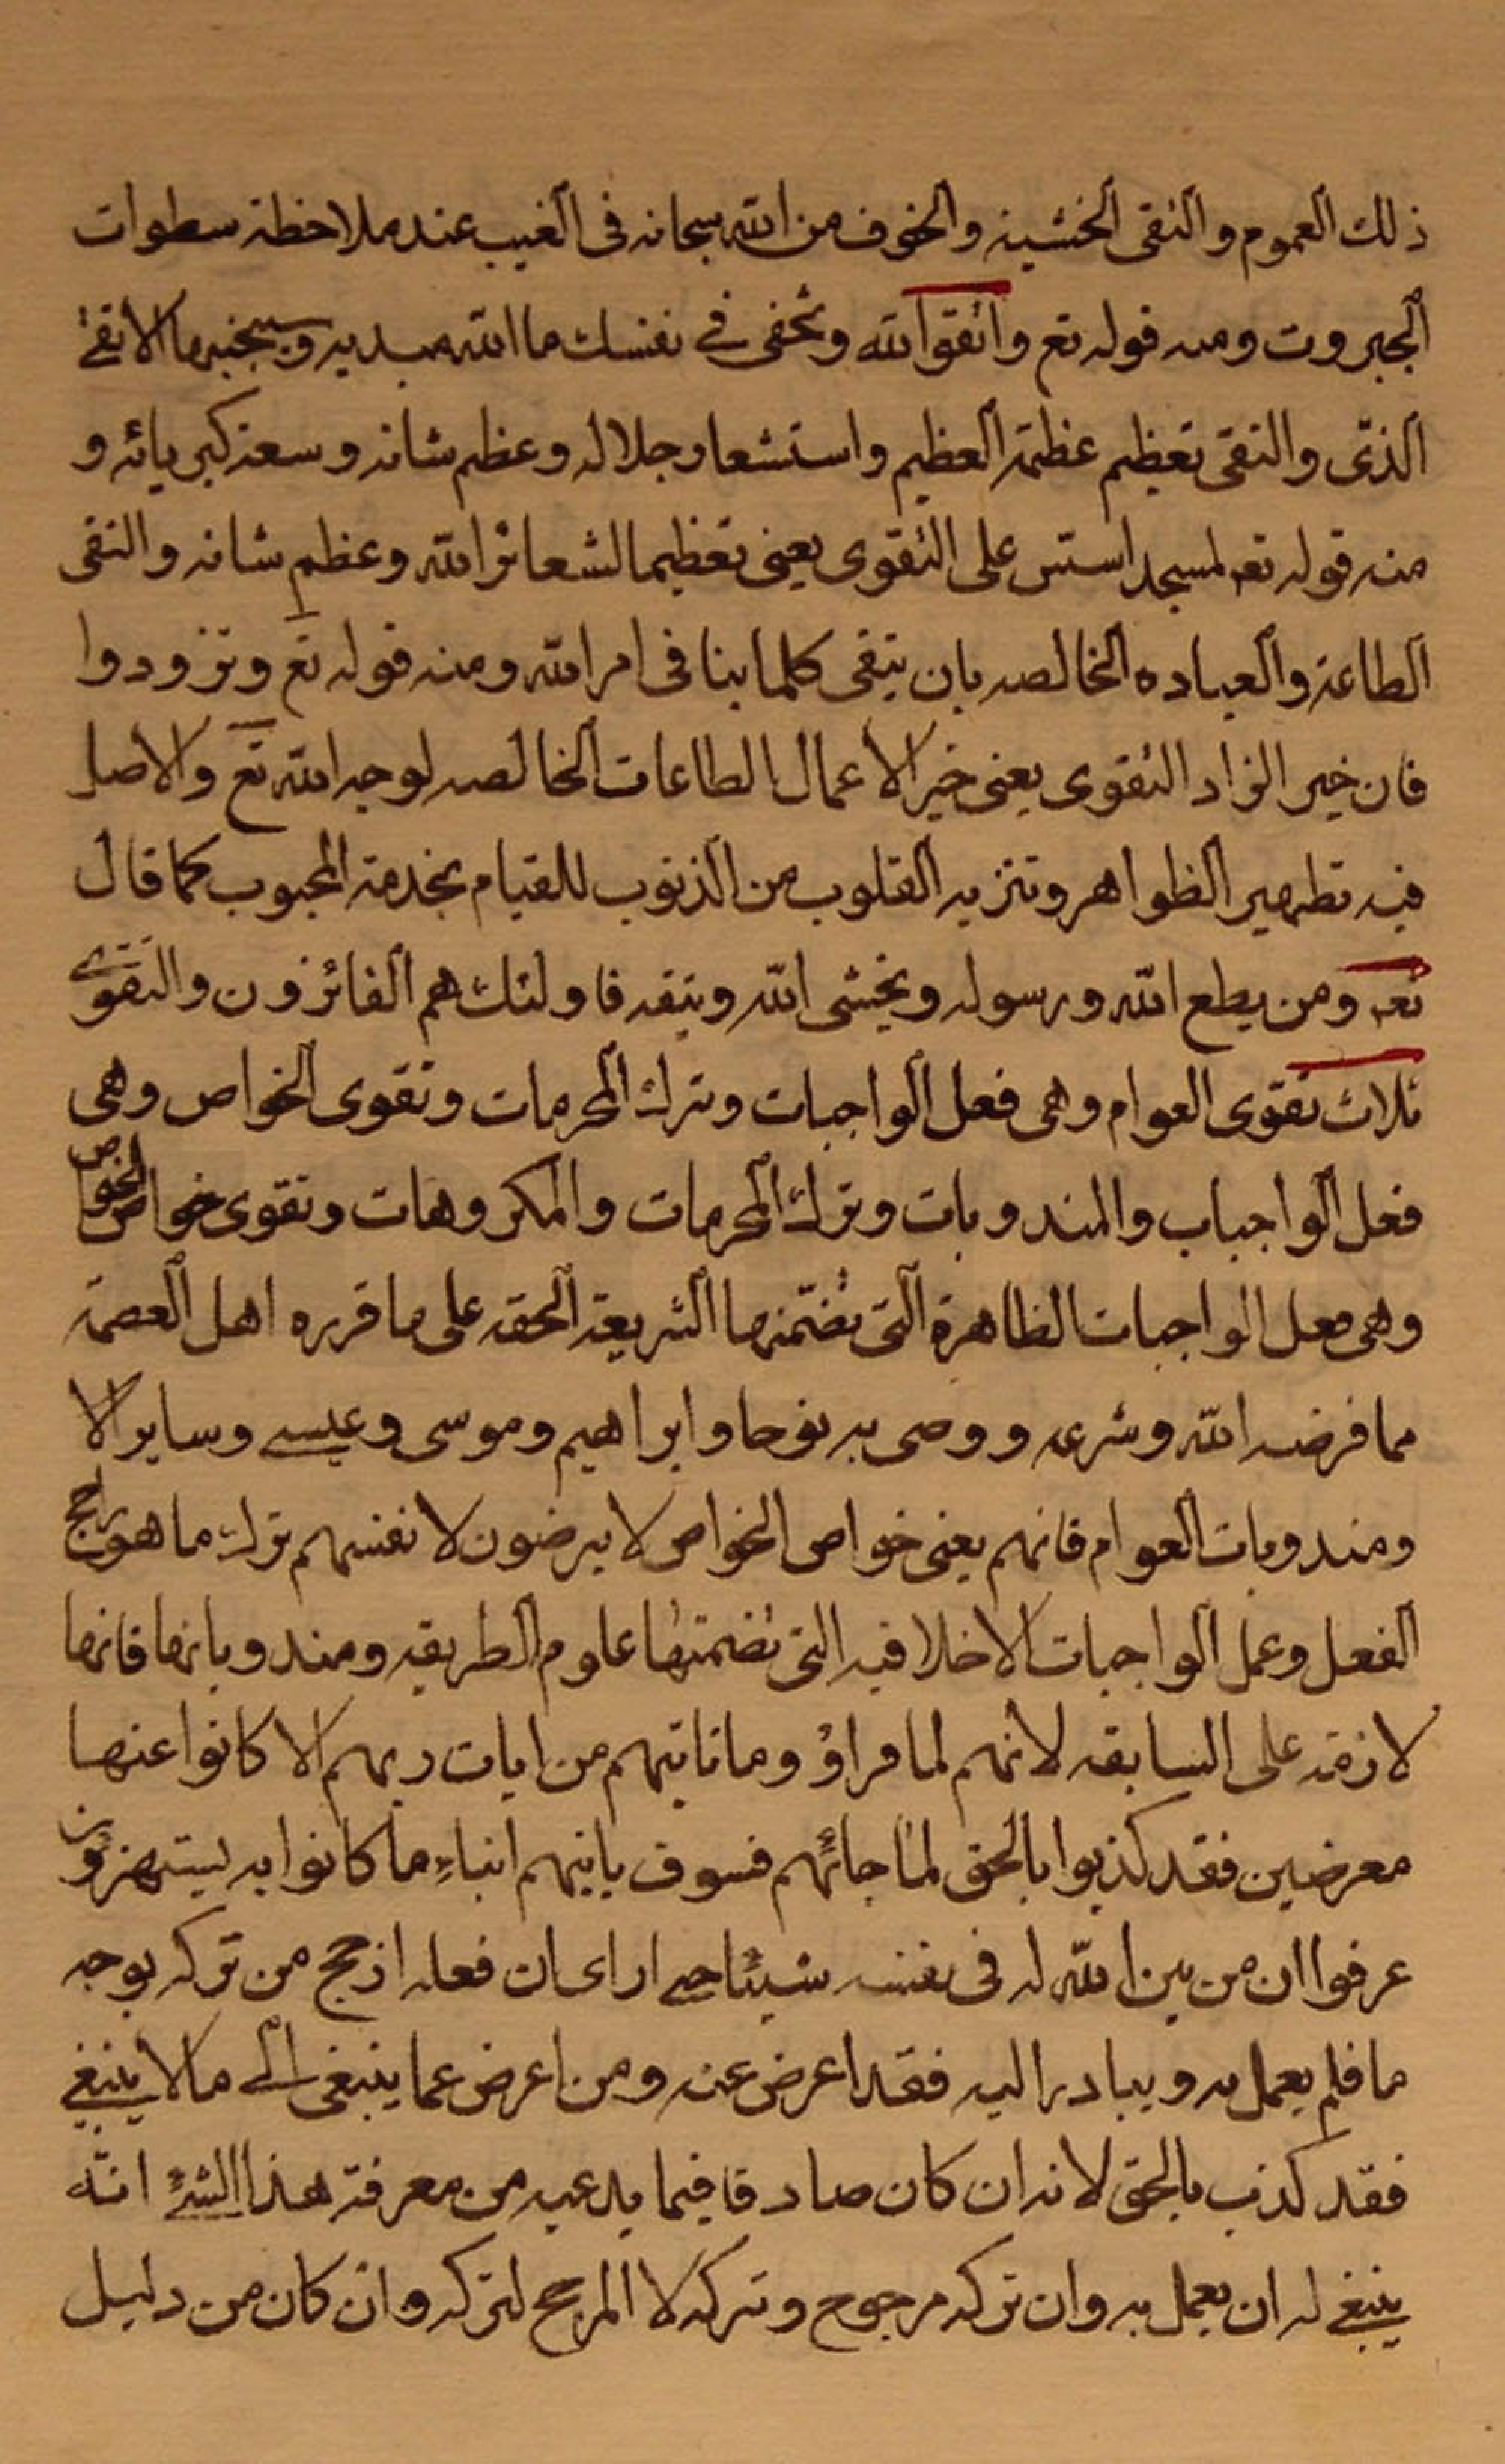 ذلك العموم والتقى الخشية والخوف من الله سبحانه فى الغيب عند ملاحظة سطوات
الجبروت ومنه قوله تع واتقوا الله وتخفى في نفسك ما الله مبديه وسيجنبها الاتقى
الذى والتقى تعظيم عظمة العظيم واستشعار جلاله وعظم شانه وسعة كبريائه و
منه قوله تعه لمسجد اسس على التقوى يعنى تعظيما لشعائر الله وعظم شانه والتقى
الطاعة والعباده الخالصه بان يتقى كلما ينافى امر الله ومنه قوله تع وتزودوا
فان خير الزاد التقوى يعنى خير الاعمال الطاعات الخالصه لوجه الله تع والاصل
فيه تطهير الظواهر وتنزيه القلوب من الذنوب للقيام بخدمة المحبوب كما قال
تعه ومن يطع الله ورسوله ويخشى الله ويتقه فاولئك هم الفائزون والتقوى
ثلاث تقوى العوام وهى فعل الواجبات وترك المحرمات وتقوى الخواص وهى
فعل الواجباب والمندوبات وترك المحرمات والمكروهات وتقوى خواص الخواص
وهى فعل الواجبات الظاهرة التى تضمنها الشريعة الحقه على ما قرره اهل العصمة
مما فرضه الله وشرعه ووصى به نوحا وابراهيم وموسى وعيسى وساير الا
ومندوبات العوام فانهم يعنى خواص الخواص لا يرضون لانفسهم ترك ما هو راجح
الفعل وعمل الواجبات الاخلاقيه التى تضمنتها علوم الطريقه ومندوباتها فانها
لازمة على السابقه لانهم لما قراؤ وما تاتيهم من ايات ربهم الا كانوا عنها
معرضين فقد كذبوا بالحق لما جائهم فسوف ياتيهم انباء ما كانوا به يستهزؤن
عرفوا ان من بين الله له فى نفسه شيئا حتى اراى ان فعله ارجح من تركه بوجه
ما فلم يعمل به ويبادر اليه فقد اعرض عنه ومن اعرض عما ينبغى الى ما لا ينبغي
فقد كذب بالحق لانه ان كان صادقا فيما يدعيه من معرفة هذا الشئ انه
ينبغي له ان يعمل به وان تركه مرجوح وتركه لا المرجح لتركه وان كان من دليل